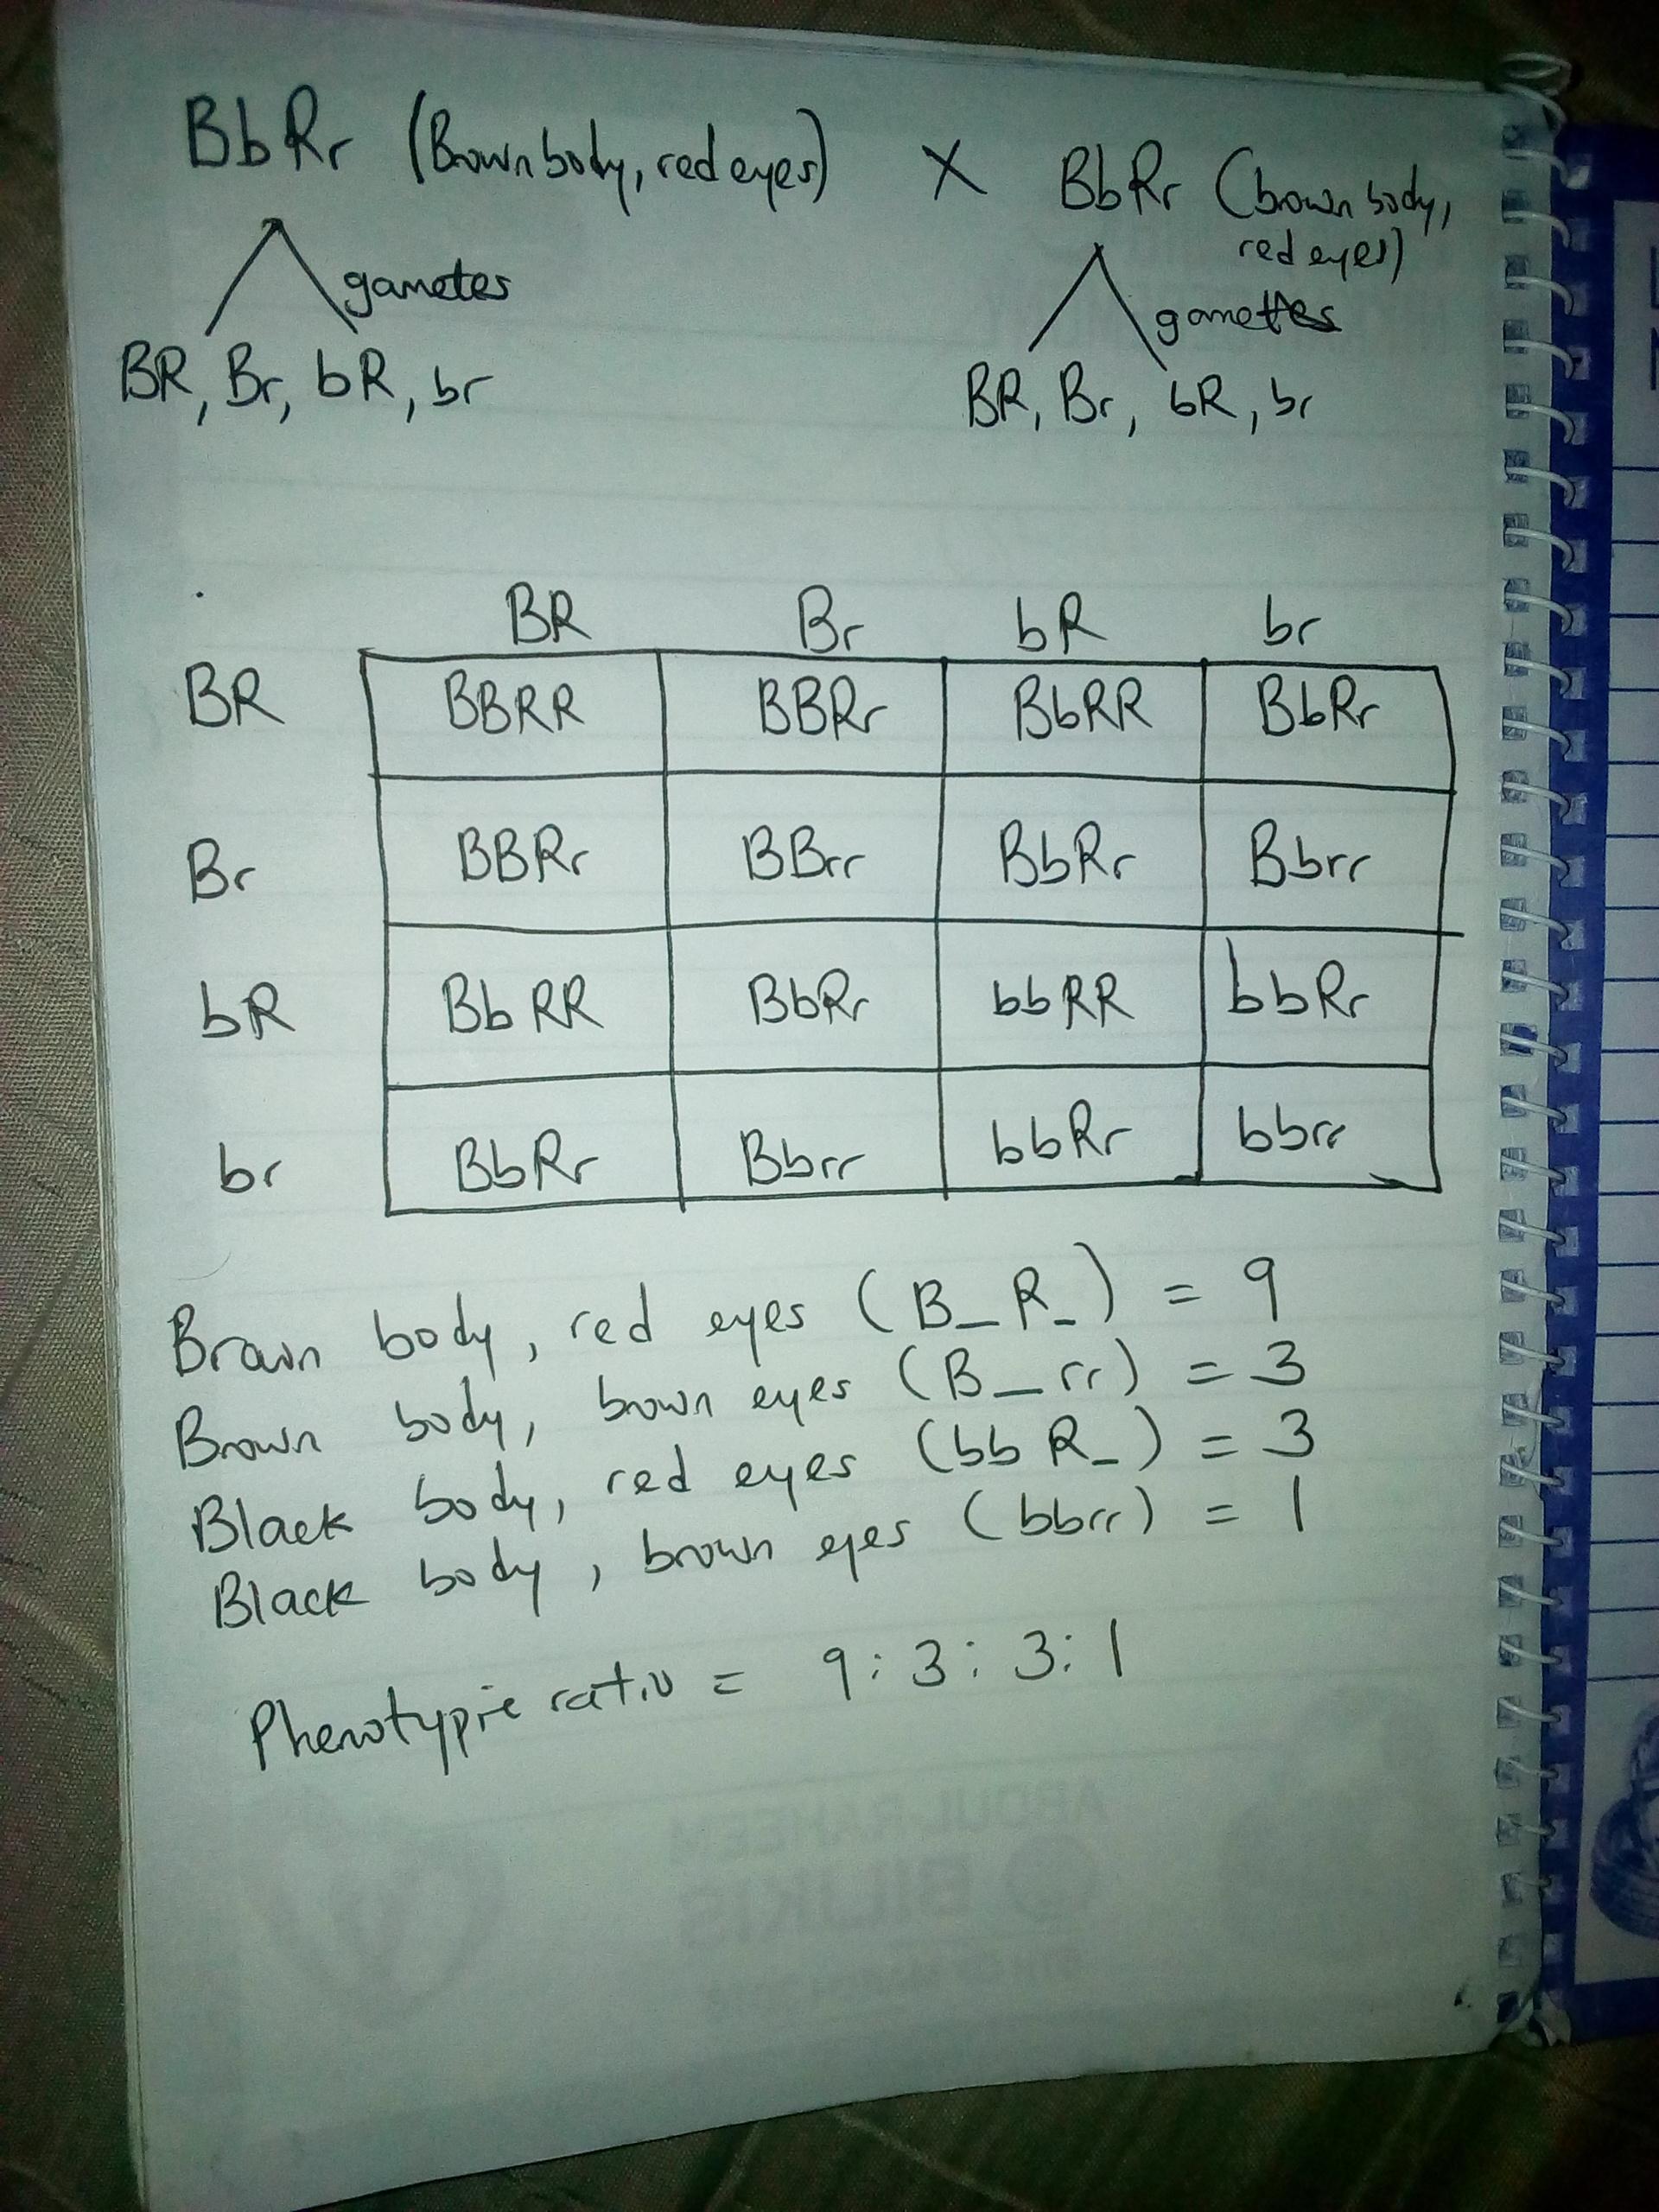 BbRr (Brown body, red eyes) X BbRr (brown body,
red eyes)
gametes gametes
BR, Br, bR, br BR, Br, bR, br
BR Br bR br
BR BBRR BBRr BbRR BbRr
Br BBRr BBrr BbRr Bbrr
bR BbRR BbRr bbRR bbRr
br BbRr Bbrr bbRr bbrr
Brown body, red eyes (B_R_) = 9
Brown body, brown eyes (B_rr) = 3
Black body, red eyes (bbR_) = 3
Black body, brown eyes (bbrr) = 1
Phenotypic ratio = 9:3:3:1
ABDUL RAHEEM
BILIKIS